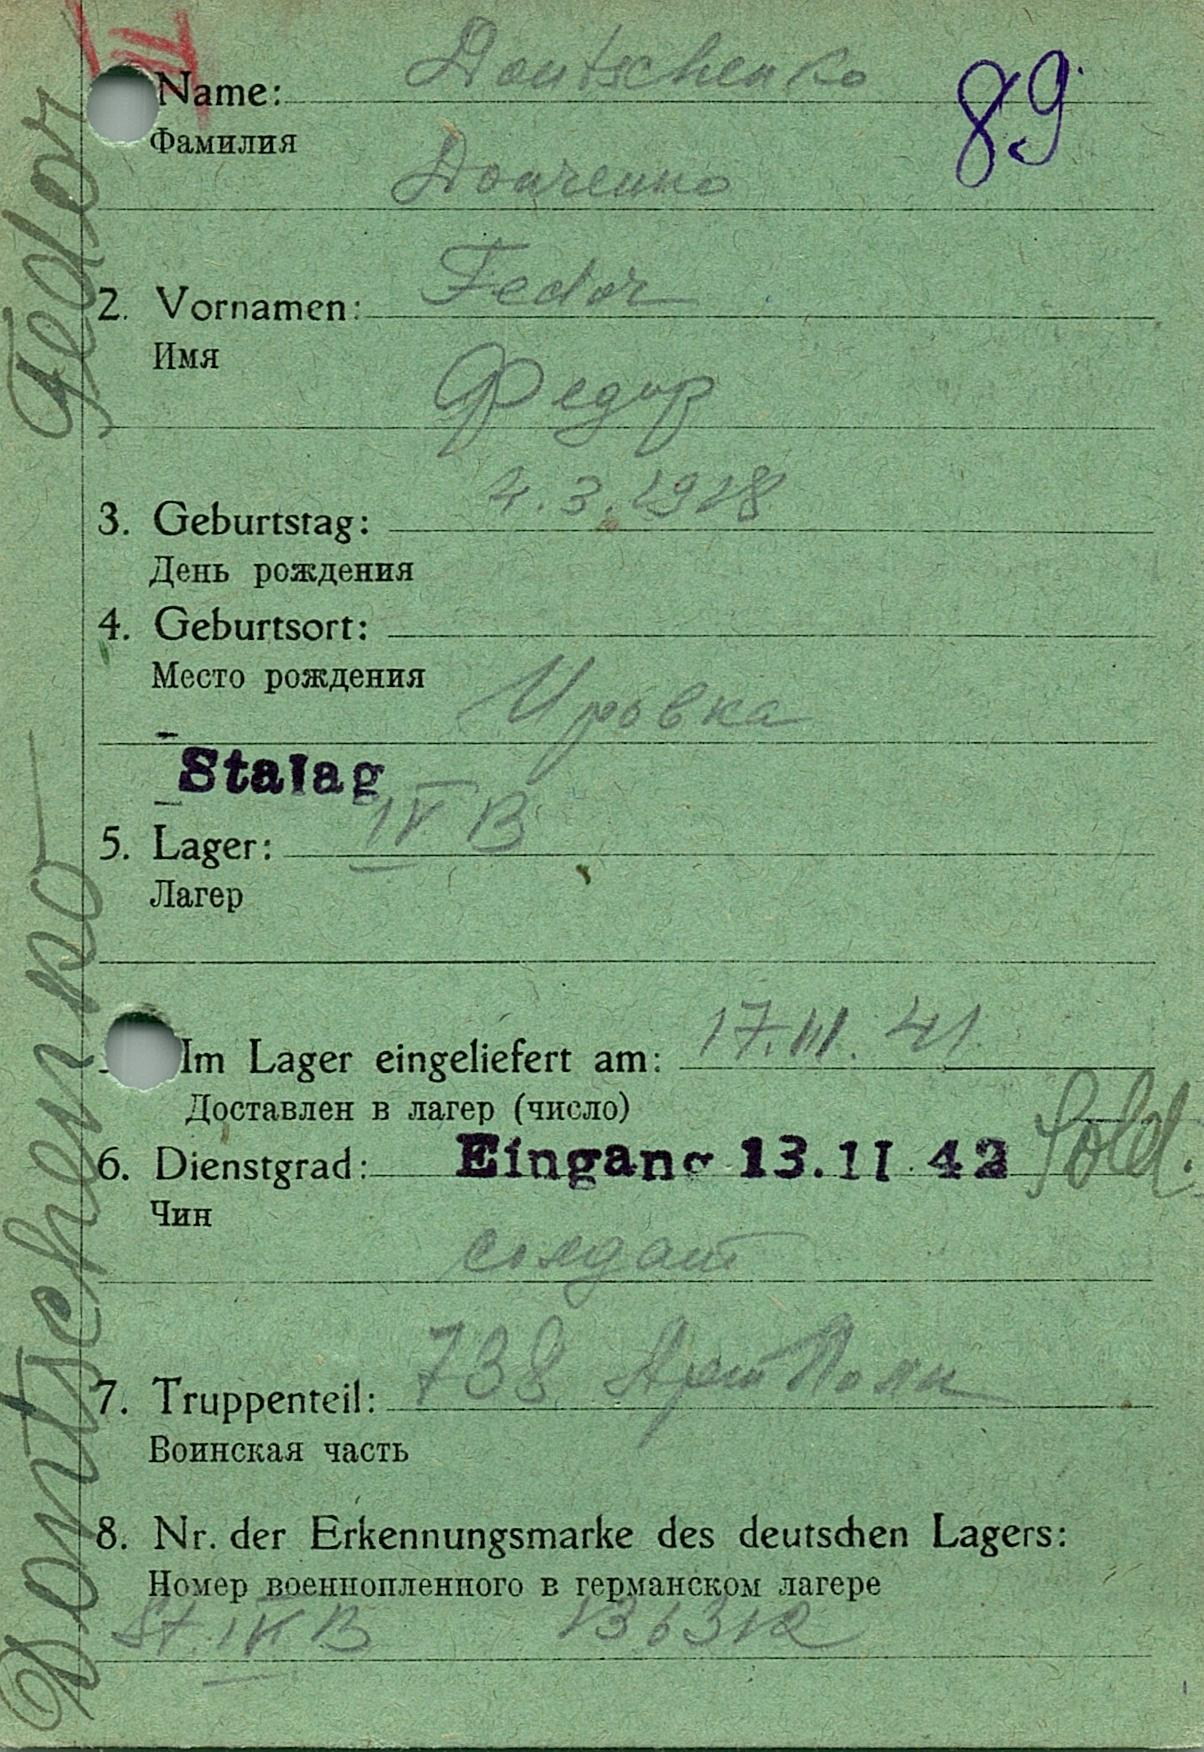 III
Name: Dontschenko
89
Фамилия
Донченко
2. Vornamen: Fedor
Имя
Федир
3. Geburtstag: 4.3.1918
День рождения
4. Geburtsort:
Место рождения
Ировка
Stalag
5. Lager: IV B
Лагер
Im Lager eingeliefert am: 17.III.41.
Доставлен в лагер (число)
6. Dienstgrad: Eingang 13.II.42 Sold.
Чин
солдат
7. Truppenteil: 738 Арт Полк
Воинская часть
8. Nr. der Erkennungsmarke des deutschen Lagers:
Номер военнопленного в германском лагере
St. IV B
Dontschenko Fedor